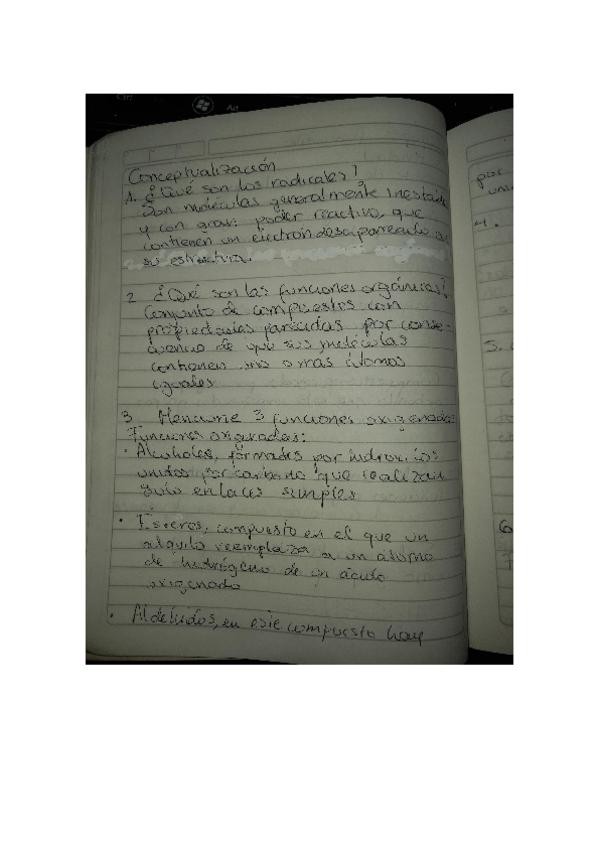 Conceptualización
1. ¿Qué son los radicales?
Son moléculas generalmente inestable
y con gran poder reactivo, que
contienen un electron desapareado en
su estructura.
2 ¿Qué son las funciones orgánicas?
Conjunto de compuestos con
propiedades parecidas por conse-
cuencia de que sus moléculas
contienen uno o más átomos
iguales
3 Mencione 3 funciones oxigenadas
Funciones oxigenadas:
• Alcoholes, formados por hidroxilos
unidos por carbono que realizan
solo enlaces simples
• Esteres, compuesto en el que un
alquilo reemplaza a un átomo
de hidrógeno de un ácido
oxigenado
• Aldehidos, en este compuesto hay
por
4.
5.
6